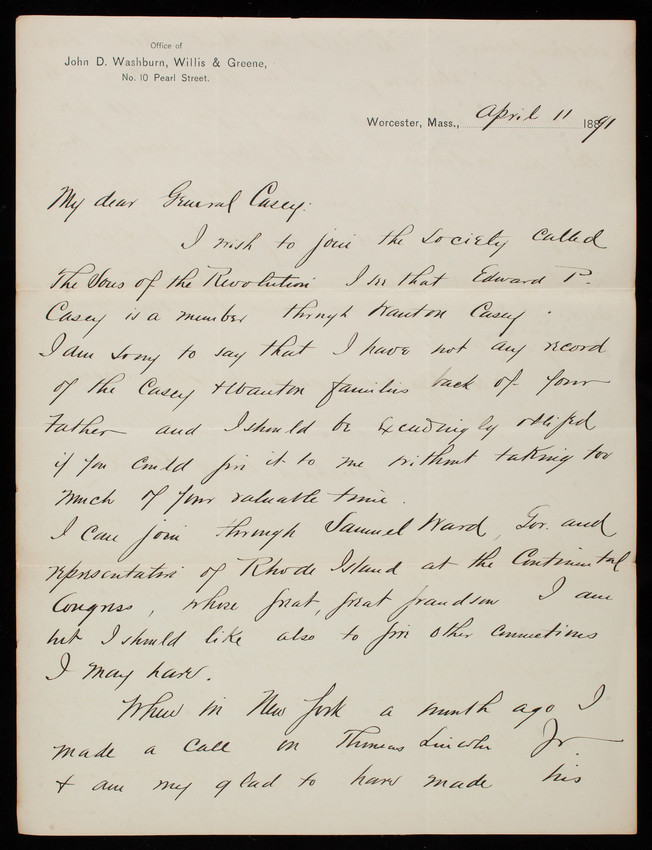 Office of
John D. Washburn, Willis & Greene,
No. 10 Pearl Street.
Worcester, Mass., April 11 1891
My dear General Casey:
I wish to join the Society called
The Sons of the Revolution I see that Edward P.
Casey is a member through Wanton Casey.
I am sorry to say that I have not any record
of the Casey & Wanton families back of your
Father and I should be exceedingly obliged
if you could give it to me without taking too
much of your valuable time.
I can join through Samuel Ward, Gov. and
representative of Rhode Island at the Continental
Congress, whose great, great grandson I am
but I should like also to give other connections
I may have.
When in New York a month ago I
made a call on Thomas Lincoln Jr
& am very glad to have made his